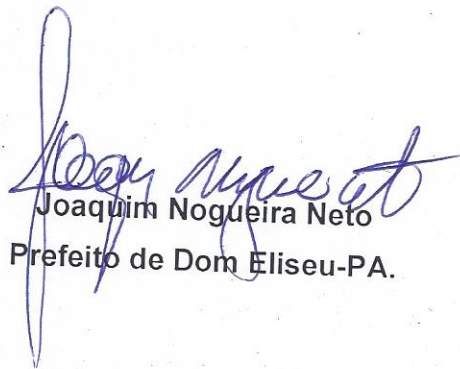 Joaquim Nogueira Neto
Prefeito de Dom Eliseu-PA.